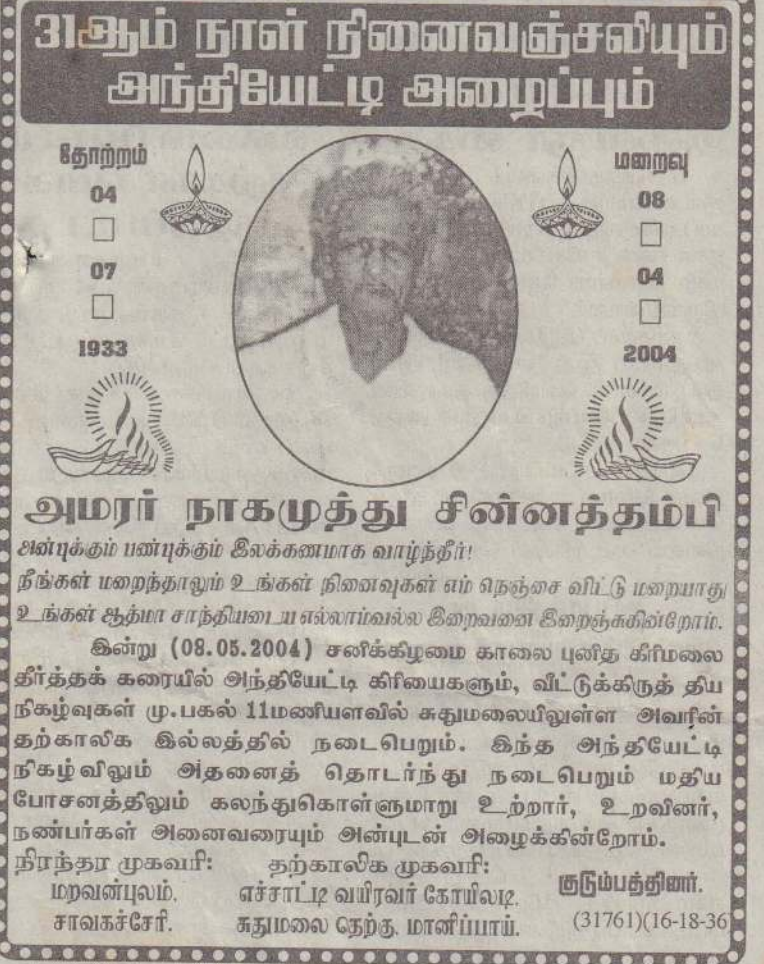 31ஆம் நாள் நினைவஞ்சலியும்
அந்தியேட்டி அழைப்பும்
தோற்றம்
04
07
1933
மறைவு
08
04
2004
அமரர் நாகமுத்து சின்னத்தம்பி
அன்புக்கும் பண்புக்கும் இலக்கணமாக வாழ்ந்தீர்!
நீங்கள் மறைந்தாலும் உங்கள் நினைவுகள் எம் நெஞ்சை விட்டு மறையாது
உங்கள் ஆத்மா சாந்தியடைய எல்லாம்வல்ல இறைவனை இறைஞ்சுகின்றோம்.
இன்று (08.05.2004) சனிக்கிழமை காலை புனித கீரிமலை
தீர்த்தக் கரையில் அந்தியேட்டி கிரியைகளும், வீட்டுக்கிருத் திய
நிகழ்வுகள் மு.பகல் 11மணியளவில் சுதுமலையிலுள்ள அவரின்
தற்காலிக இல்லத்தில் நடைபெறும். இந்த அந்தியேட்டி
நிகழ்விலும் அதனைத் தொடர்ந்து நடைபெறும் மதிய
போசனத்திலும் கலந்துகொள்ளுமாறு உற்றார், உறவினர்,
நண்பர்கள் அனைவரையும் அன்புடன் அழைக்கின்றோம்.
நிரந்தர முகவரி:
மறவன்புலம்.
சாவகச்சேரி.
தற்காலிக முகவரி:
எச்சாட்டி வயிரவர் கோயிலடி.
சுதுமலை தெற்கு. மானிப்பாய்.
குடும்பத்தினர்.
(31761)(16-18-36